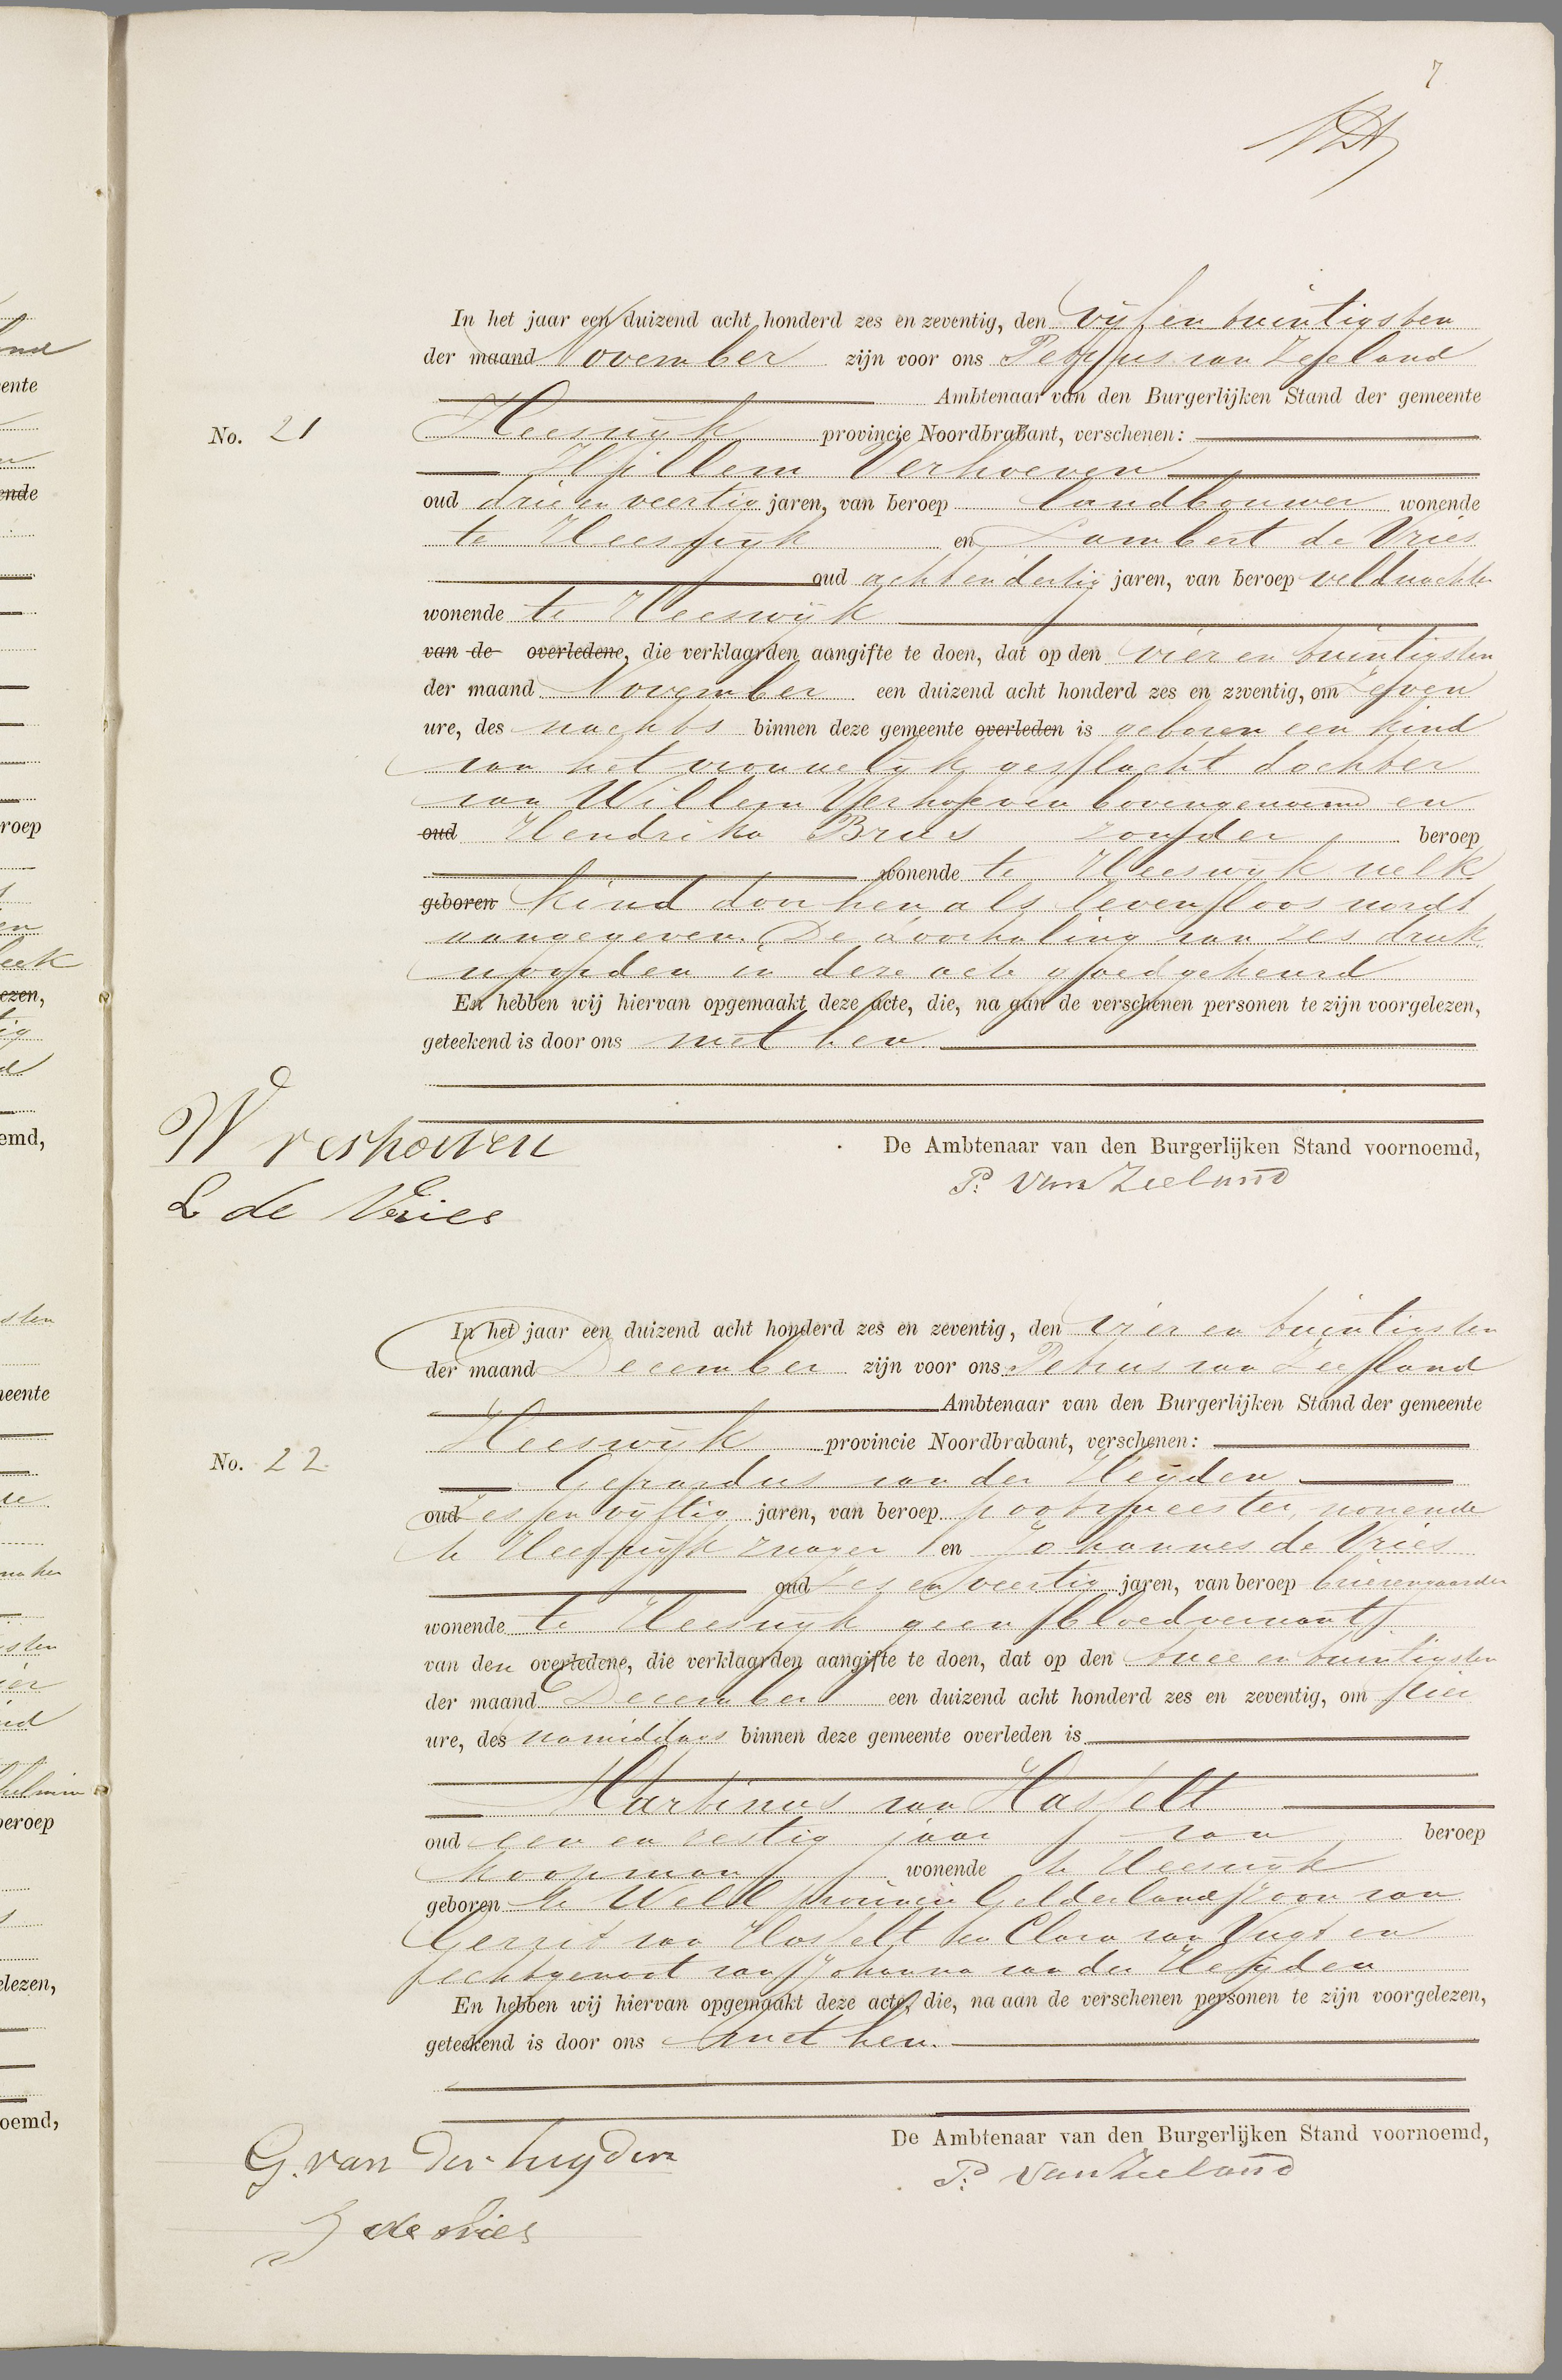 7
In het jaar een duizend acht honderd zes en zeventig, den vijf en twintigsten
der maand November zijn voor ons Petrus van Zeeland
Ambtenaar van den Burgerlijken Stand der gemeente
No. 21 Heeswijk provincie Noordbrabant, verschenen:
Willem Verhoeven
oud drie en veertig jaren, van beroep landbouwer wonende
te Heeswijk en Lambert de Vries
oud acht en dertig jaren, van beroep veldwachter
wonende te Heeswijk
van de overledene, die verklaarden aangifte te doen, dat op den vier en twintigsten
der maand November een duizend acht honderd zes en zeventig, om zeven
ure, des nachts binnen deze gemeente overleden is geboren een kind
van het vrouwelijk geslacht dochter
van Willem Verhoeven bovengenoemd en
oud Hendrika Brus zonder beroep
wonende te Heeswijk welk
geboren kind door hen als levenloos wordt
aangegeven. De doorhaling van zes druk
woorden in deze acte goedgekeurd
En hebben wij hiervan opgemaakt deze acte, die, na aan de verschenen personen te zijn voorgelezen,
geteekend is door ons met hen.
De Ambtenaar van den Burgerlijken Stand voornoemd,
W verhoeven
P. van Zeeland
L de Vries
In het jaar een duizend acht honderd zes en zeventig, den vier en twintigsten
der maand December zijn voor ons Petrus van Zeeland
Ambtenaar van den Burgerlijken Stand der gemeente
No. 22 Heeswijk provincie Noordbrabant, verschenen:
Gerardus van der Heijden
oud zes en vijftig jaren, van beroep wonende
te Heeswijk zwager en Johannes de Vries
oud zes en veertig jaren, van beroep brievengaarder
wonende te Heeswijk geen bloedverwant
van den overledene, die verklaarden aangifte te doen, dat op den twee en twintigsten
der maand December een duizend acht honderd zes en zeventig, om vier
ure, des namiddags binnen deze gemeente overleden is
Martinus van Hasselt
oud een en zestig jaar van beroep
koopman wonende te Heeswijk
geboren te Well provincie Gelderland zoon van
Gerrit van Hasselt en Clara van Vugt en
echtgenoot van Johanna van der Heijden
En hebben wij hiervan opgemaakt deze acte, die, na aan de verschenen personen te zijn voorgelezen,
geteekend is door ons met hen.
De Ambtenaar van den Burgerlijken Stand voornoemd,
G. van der heyden
P. van Zeeland
J de Vries